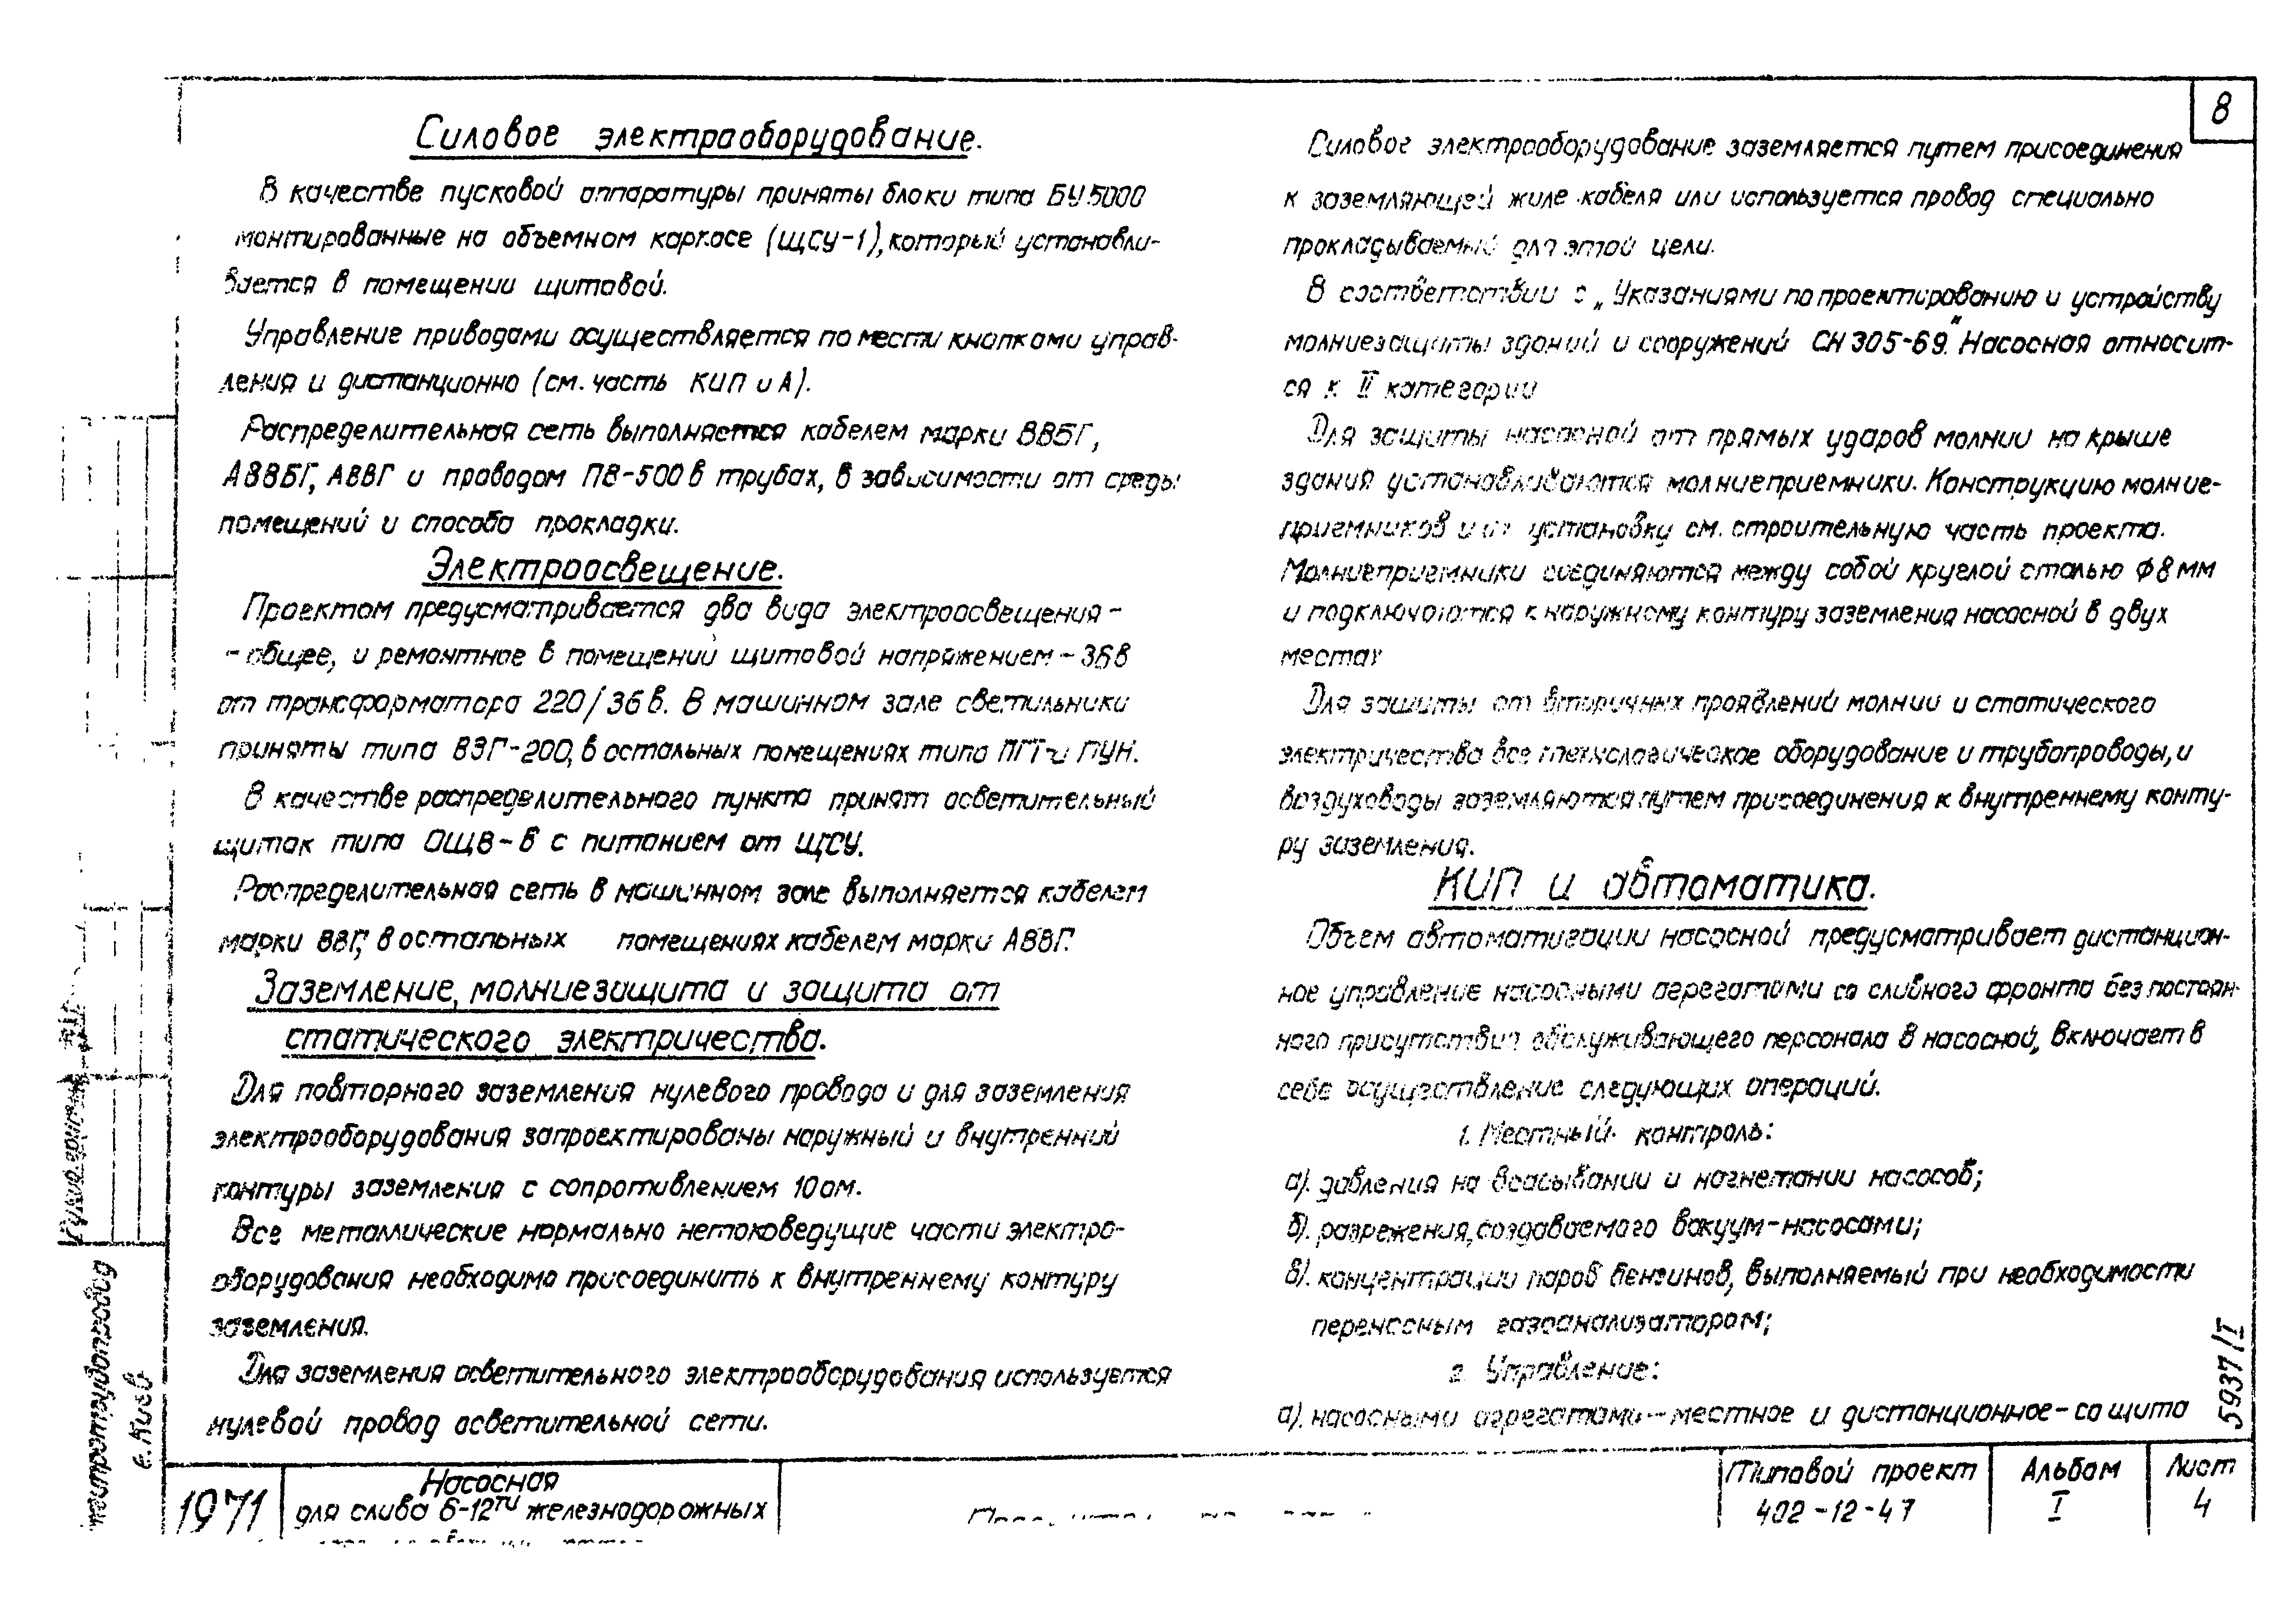 8
Силовое электрооборудование.
В качестве пусковой аппаратуры приняты блоки типа БУ5000
монтированные на объемном каркасе (ЩСУ-1), который устанавли-
вается в помещении щитовой.
Управление приводами осуществляется по месту кнопками управ-
ления и дистанционно (см. часть КИП и А).
Распределительная сеть выполняется кабелем марки ВВБГ,
АВВБГ, АВВГ и проводом ПВ-500 в трубах, в зависимости от среды
помещений и способа прокладки.
Электроосвещение.
Проектом предусматривается два вида электроосвещения -
- общее, и ремонтное в помещений щитовой напряжением - 36в
от трансформатора 220/36в. В машинном зале светильники
приняты типа ВЗГ-200, в остальных помещениях типа ПГТ и ПУН.
В качестве распределительного пункта принят осветительный
щиток типа ОЩВ-6 с питанием от ЩСУ.
Распределительная сеть в машинном зале выполняется кабелем
марки ВВГ, в остальных помещениях кабелем марки АВВГ.
Заземление, молниезащита и защита от
статического электричества.
Для повторного заземления нулевого провода и для заземления
электрооборудования запроектированы наружный и внутренний
контуры заземления с сопротивлением 10 ом.
Все металлические нормально нетоковедущие части электро-
оборудования необходимо присоединить к внутреннему контуру
заземления.
Для заземления осветительного электрооборудования используется
нулевой провод осветительной сети.
Силовое электрооборудование заземляется путем присоединения
к заземляющей жиле кабеля или используется провод специально
прокладываемый для этой цели.
В соответствии с „Указаниями по проектированию и устройству
молниезащиты зданий и сооружений СН 305-69". Насосная относит-
ся к II категории
Для защиты насосной от прямых ударов молнии на крыше
здания устанавливаются молниеприемники. Конструкцию молние-
приемников и их установку см. строительную часть проекта.
Молниеприемники соединяются между собой круглой сталью Ф8мм
и подключаются к наружному контуру заземления насосной в двух
местах
Для защиты от вторичных проявлений молнии и статического
электричества все технологическое оборудование и трубопроводы, и
воздуховоды заземляются путем присоединения к внутреннему конту-
ру заземления.
КИП и автоматика.
Объем автоматизации насосной предусматривает дистанцион-
ное управление насосными агрегатами со сливного фронта без постоян-
ного присутствия обслуживающего персонала в насосной, включает в
себе осуществление следующих операций.
1. Местный контроль:
а). давления на всасывании и нагнетании насосов;
б). разрежения, создаваемого вакуум-насосами;
в). концентрации паров бензинов, выполняемый при необходимости
переносным газоанализатором;
2. Управление:
а). насосными агрегатами - местное и дистанционное - со щита
5937/I
г. Киев
1971
Насосная
для слива 6-12ти железнодорожных
Типовой проект
402-12-47
Альбом
I
Лист
4